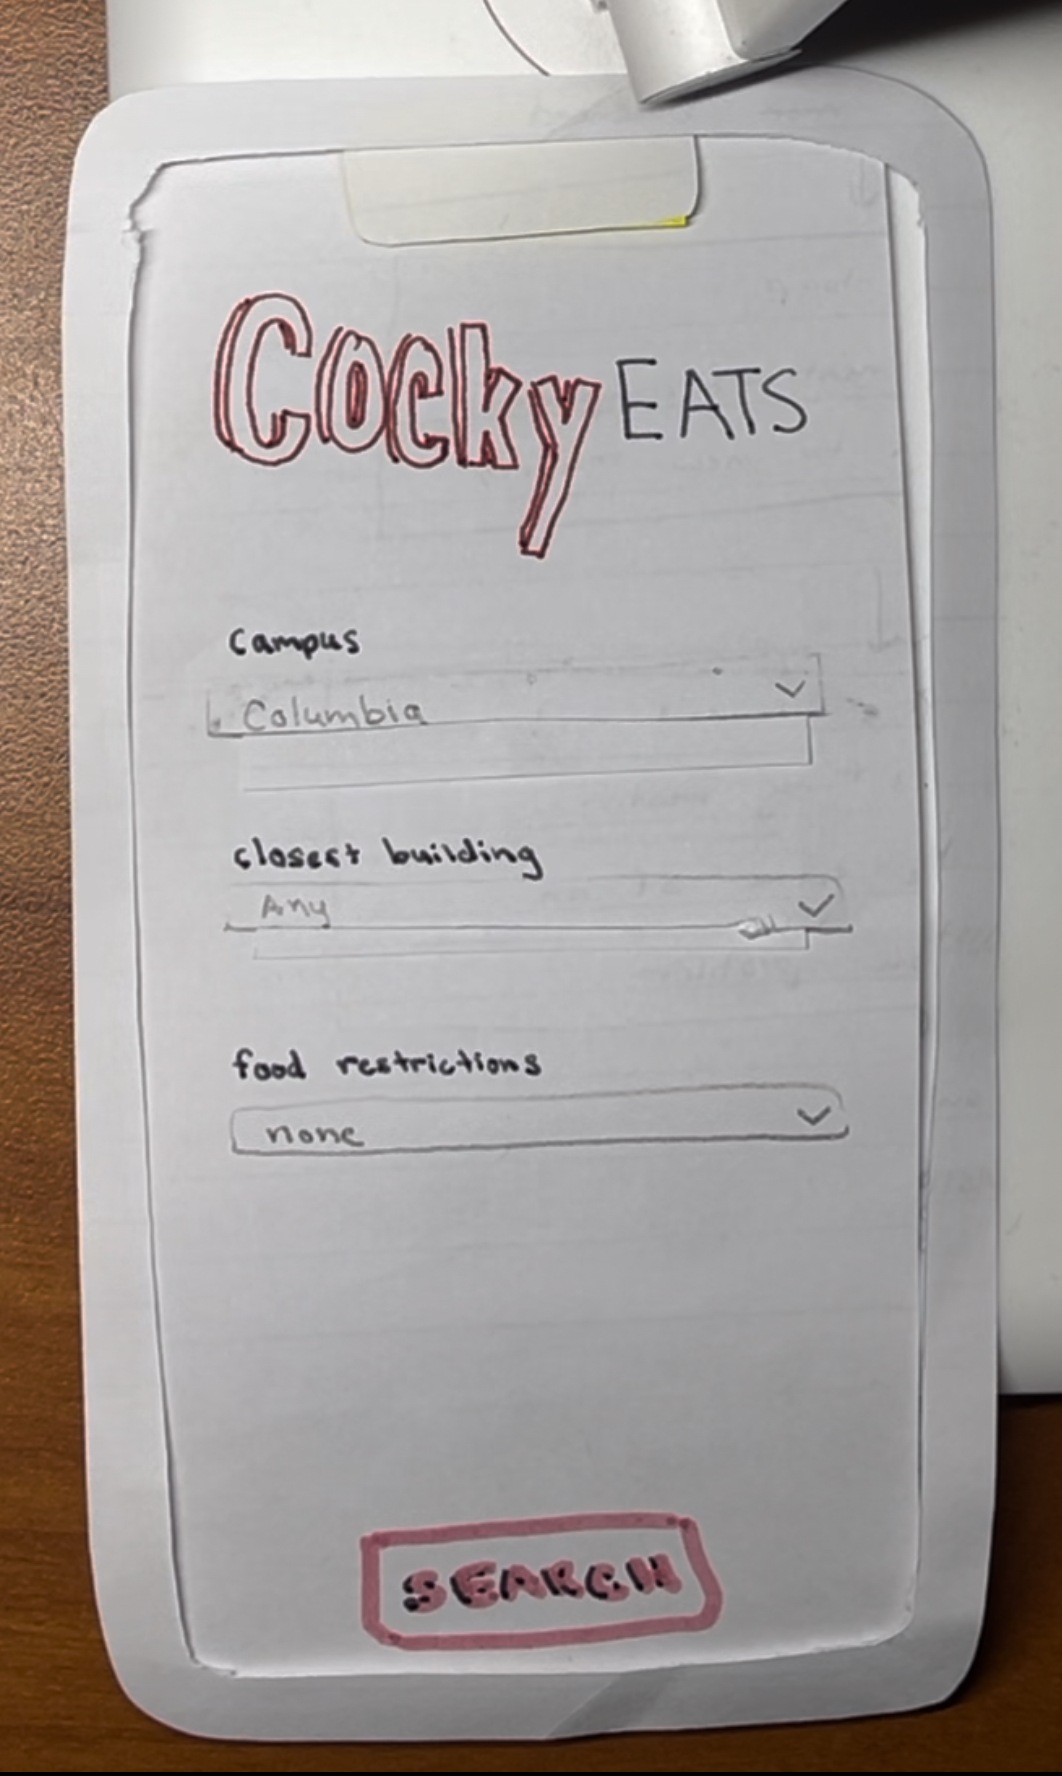 Cocky EATS
Campus
Columbia
closest building
Any
food restrictions
none
SEARCH